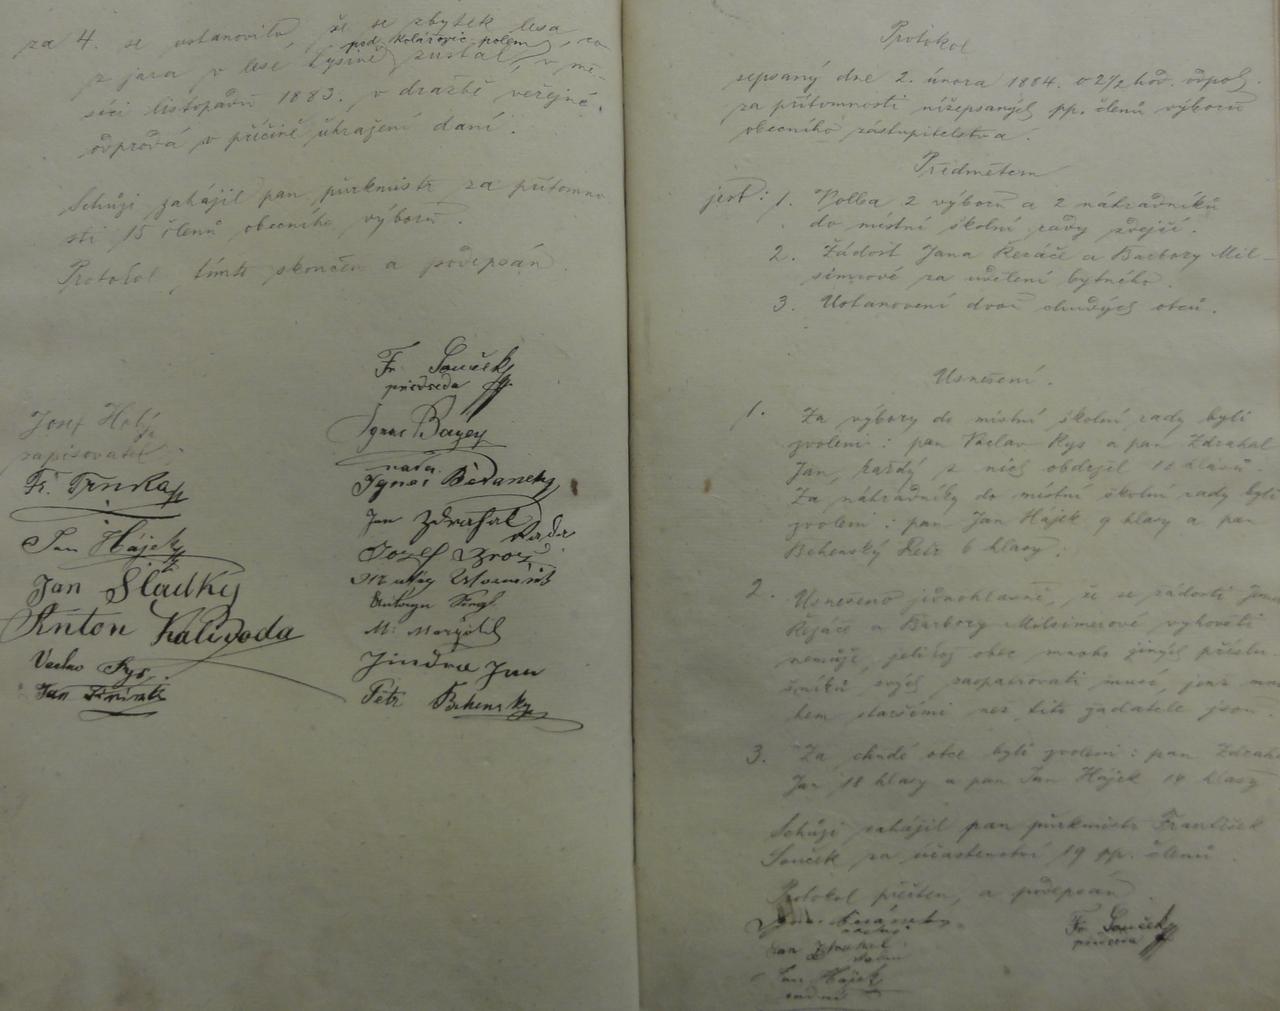 za 4. se ustanovilo, že se zbytek lesa, co
pod Kolářovic polem
z jara v lese Lysině zůstal, v mě-
síci listopadu 1883. v dražbě veřejné
odprodá v příčině uhražení daní.
Schůzi zahájil pan purkmistr za přítomno
sti 15 členů obecního výboru.
Protokol tímto skončen a podepsán.
Fr. Souček
předseda
Josef Holý
zapisovatel
Ignac
rada
Fr. Trnka
Ignac
Jan Hájek
Jan Zdrahal
rada
Jan Sladký
Josef
Anton Kalivoda
Václav Rys
Jindra Jan
Jan
Petr Behenský
Protokol
sepsaný dne 2. února 1884. o 2 1/2 hod. odpol.
za přítomnosti nížepsaných pp. členů výboru
obecního zástupitelstva.
Předmětem
jest: 1. Volba 2 výborů a 2 náhradníků
do místní školní rady zdejší.
2. Žádost Jana Řezáče a Barbory Mil-
simrové za udělení bytného.
3. Ustanovení dvou chudých otců.
Usnešení.
1. Za výbory do místní školní rady byli
zvoleni: pan Václav Rys a pan Zdrahal
Jan, každý z nich obdržel hlasů.
Za náhradníky do místní školní rady byli
zvoleni: pan Jan Hájek 9 hlasy a pan
Behenský Petr 6 hlasy.
2. Usnešeno jednohlasně, že se žádosti Jana
Řezáče a Barbory Milsimerové vyhověti
nemůže, jelikož obec mnoho jiných příslu-
šníků svých zaopatrovati musí, jenž mno
hem staršími než tito žadatelé jsou.
3. Za chudé otce byli zvoleni: pan Zdraha
Jan 18 hlasy a pan Jan Hájek 14 hlasy
Schůzi zahájil pan purkmistr František
Souček za účastenství 19 pp. členů.
Protokol přečten, a podepsán.
Fr. Souček
předseda
Jan Zdrahal
Jan Hájek
radní